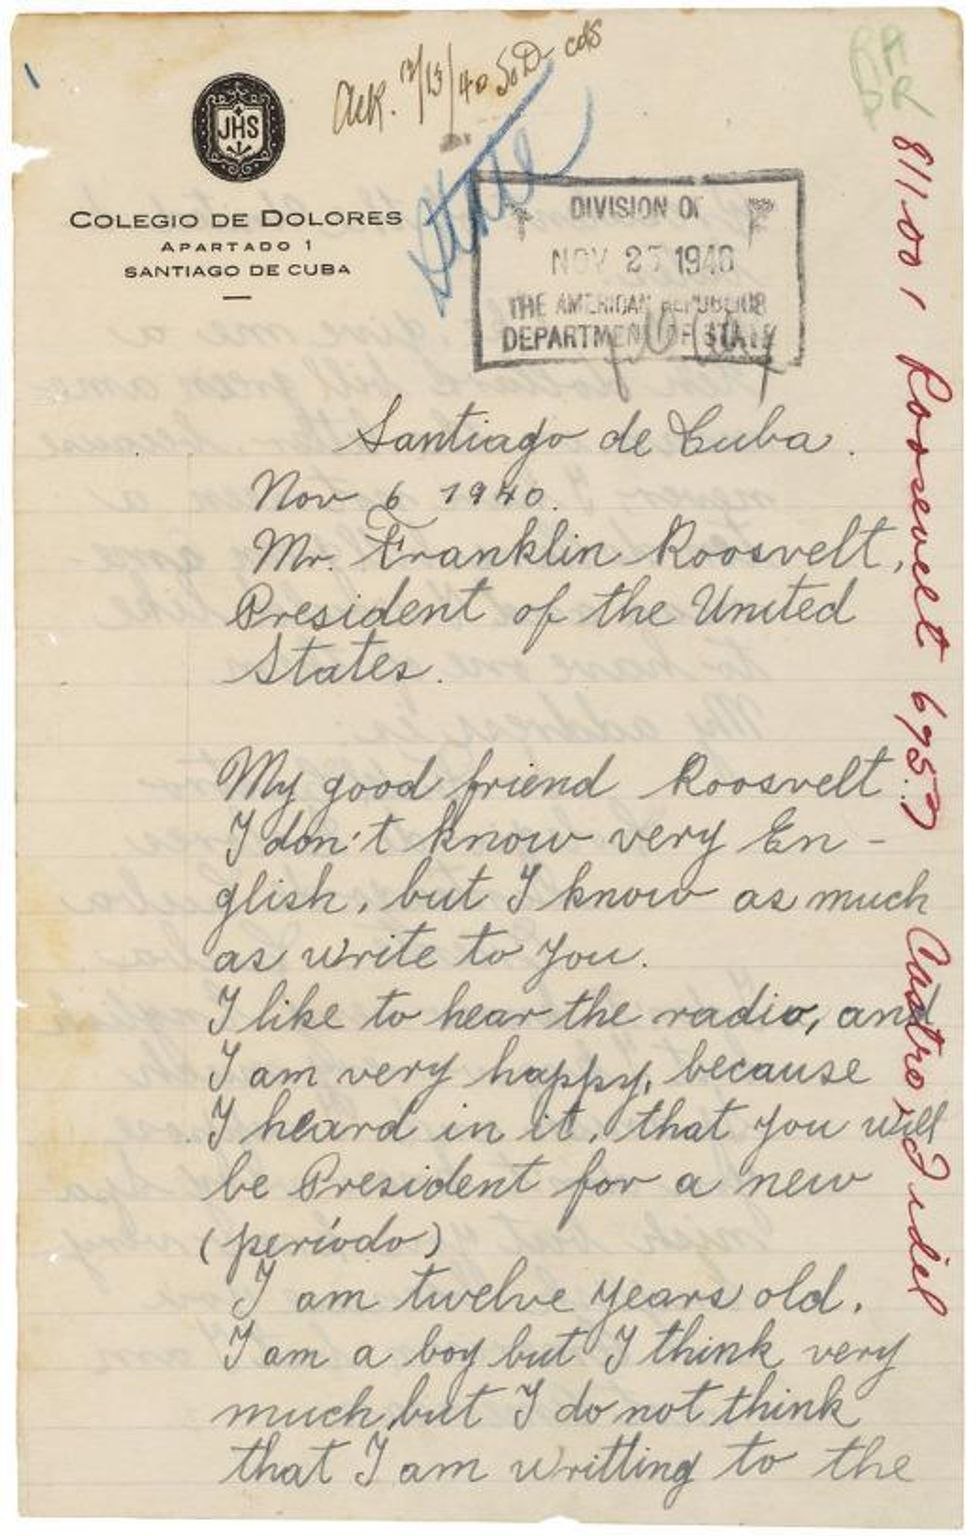 JHS
COLEGIO DE DOLORES
APARTADO 1
SANTIAGO DE CUBA
Ack. 12/13/40 SoD- cds
State
DIVISION OF
NOV 27 1940
THE AMERICAN REPUBLICS
DEPARTMENT OF STATE
Santiago de Cuba.
Nov 6 1940.
Mr. Franklin Roosvelt,
President of the United
States.
My good friend Roosvelt
I don't know very En-
glish, but I know as much
as write to you.
I like to hear the radio, and
I am very happy, because
I heard in it, that you will
be President for a new
(período)
I am twelve years old.
I am a boy but I think very
much, but I do not think
that I am writting to the
811.001 Roosevelt 6957 Castro, Fidel